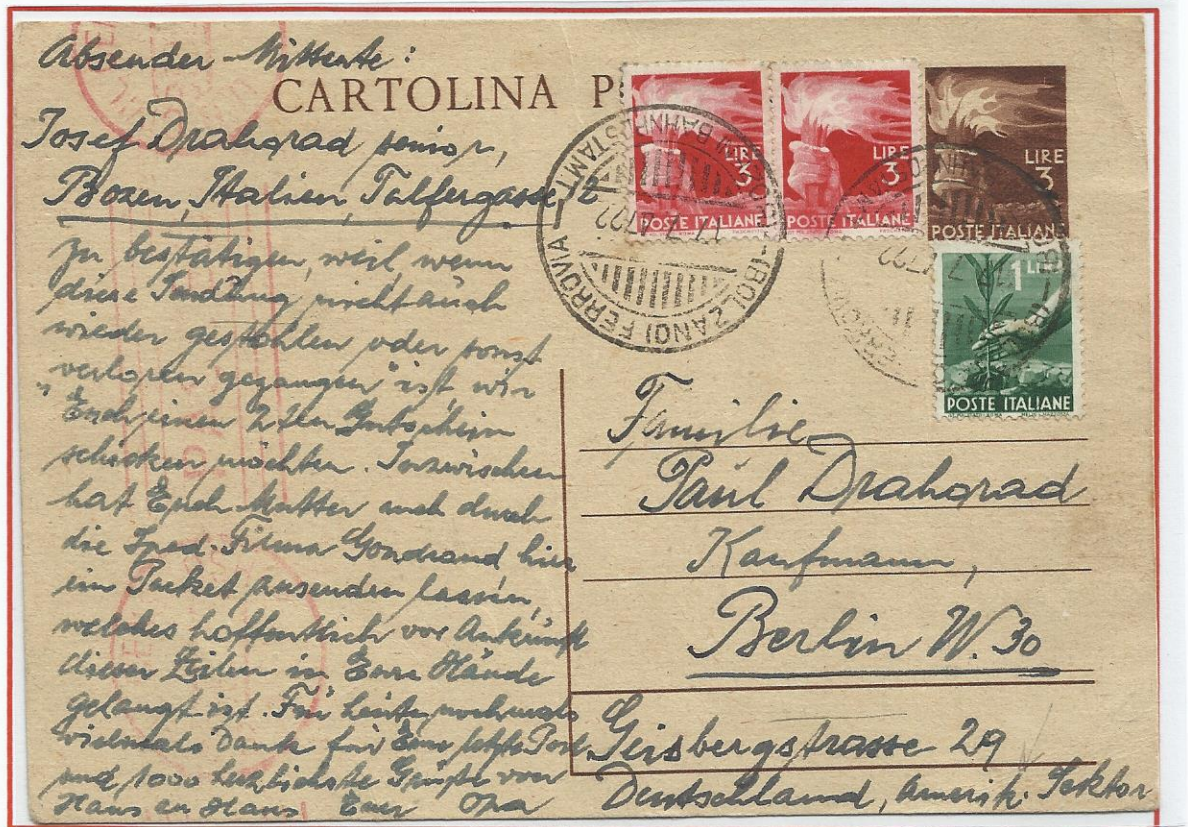 Absender-Mittente:
CARTOLINA P
Josef Drahorad senior,
Bozen, Italien, Talfergasse 2
zu bestätigen, weil, wenn
diese Sendung nicht auch
wieder gestohlen oder sonst
verloren gegangen ist, wir
Euch einen 2ten Gutschein
schicken möchten. Inzwischen
hat Euch Mutter auch durch
die Sped. Firma Gondrand hier
ein Packet zusenden lassen,
welches hoffentlich vor Ankunft
dieser Zeilen in Eure Hände
gelangt ist. Für heute nochmals
vielmals Dank für Eure letzte Post
und 1000 herzlichste Grüße von
Haus zu Haus Euer Opa
LIRE
3
POSTE ITALIANE
LIRE
3
POSTE ITALIANE
LIRE
3
POSTE ITALIANE
1 LIRE
POSTE ITALIANE
(BOLZANO) FERROVIA
BAHNPOSTAMT
Familie
Paul Drahorad
Kaufmann,
Berlin W. 30
Geisbergstrasse 29
Deutschland, Amerik. Sektor